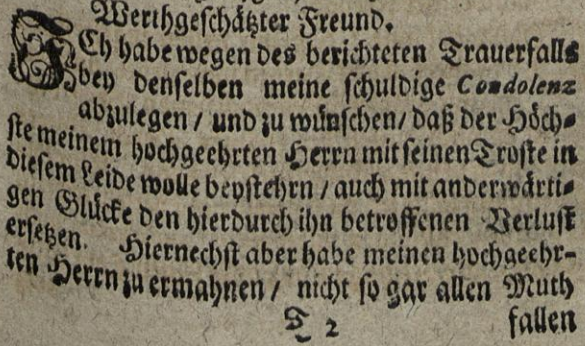 Werthgeschätzter Freund.
ICh habe wegen des berichteten Trauerfalls
bey denselben meine schuldige Condolenz
abzulegen / und zu wünschen / daß der Höch-
ste meinem hochgeehrten Herrn mit seinen Troste in
diesem Leide wolle beystehrn / auch mit anderwärti-
gen Glücke den hierdurch ihn betroffenen Verlust
ersetzen. Hiernechst aber habe meinen hochgeehr-
ten Herrn zu ermahnen / nicht so gar allen Muth
T 2 fallen